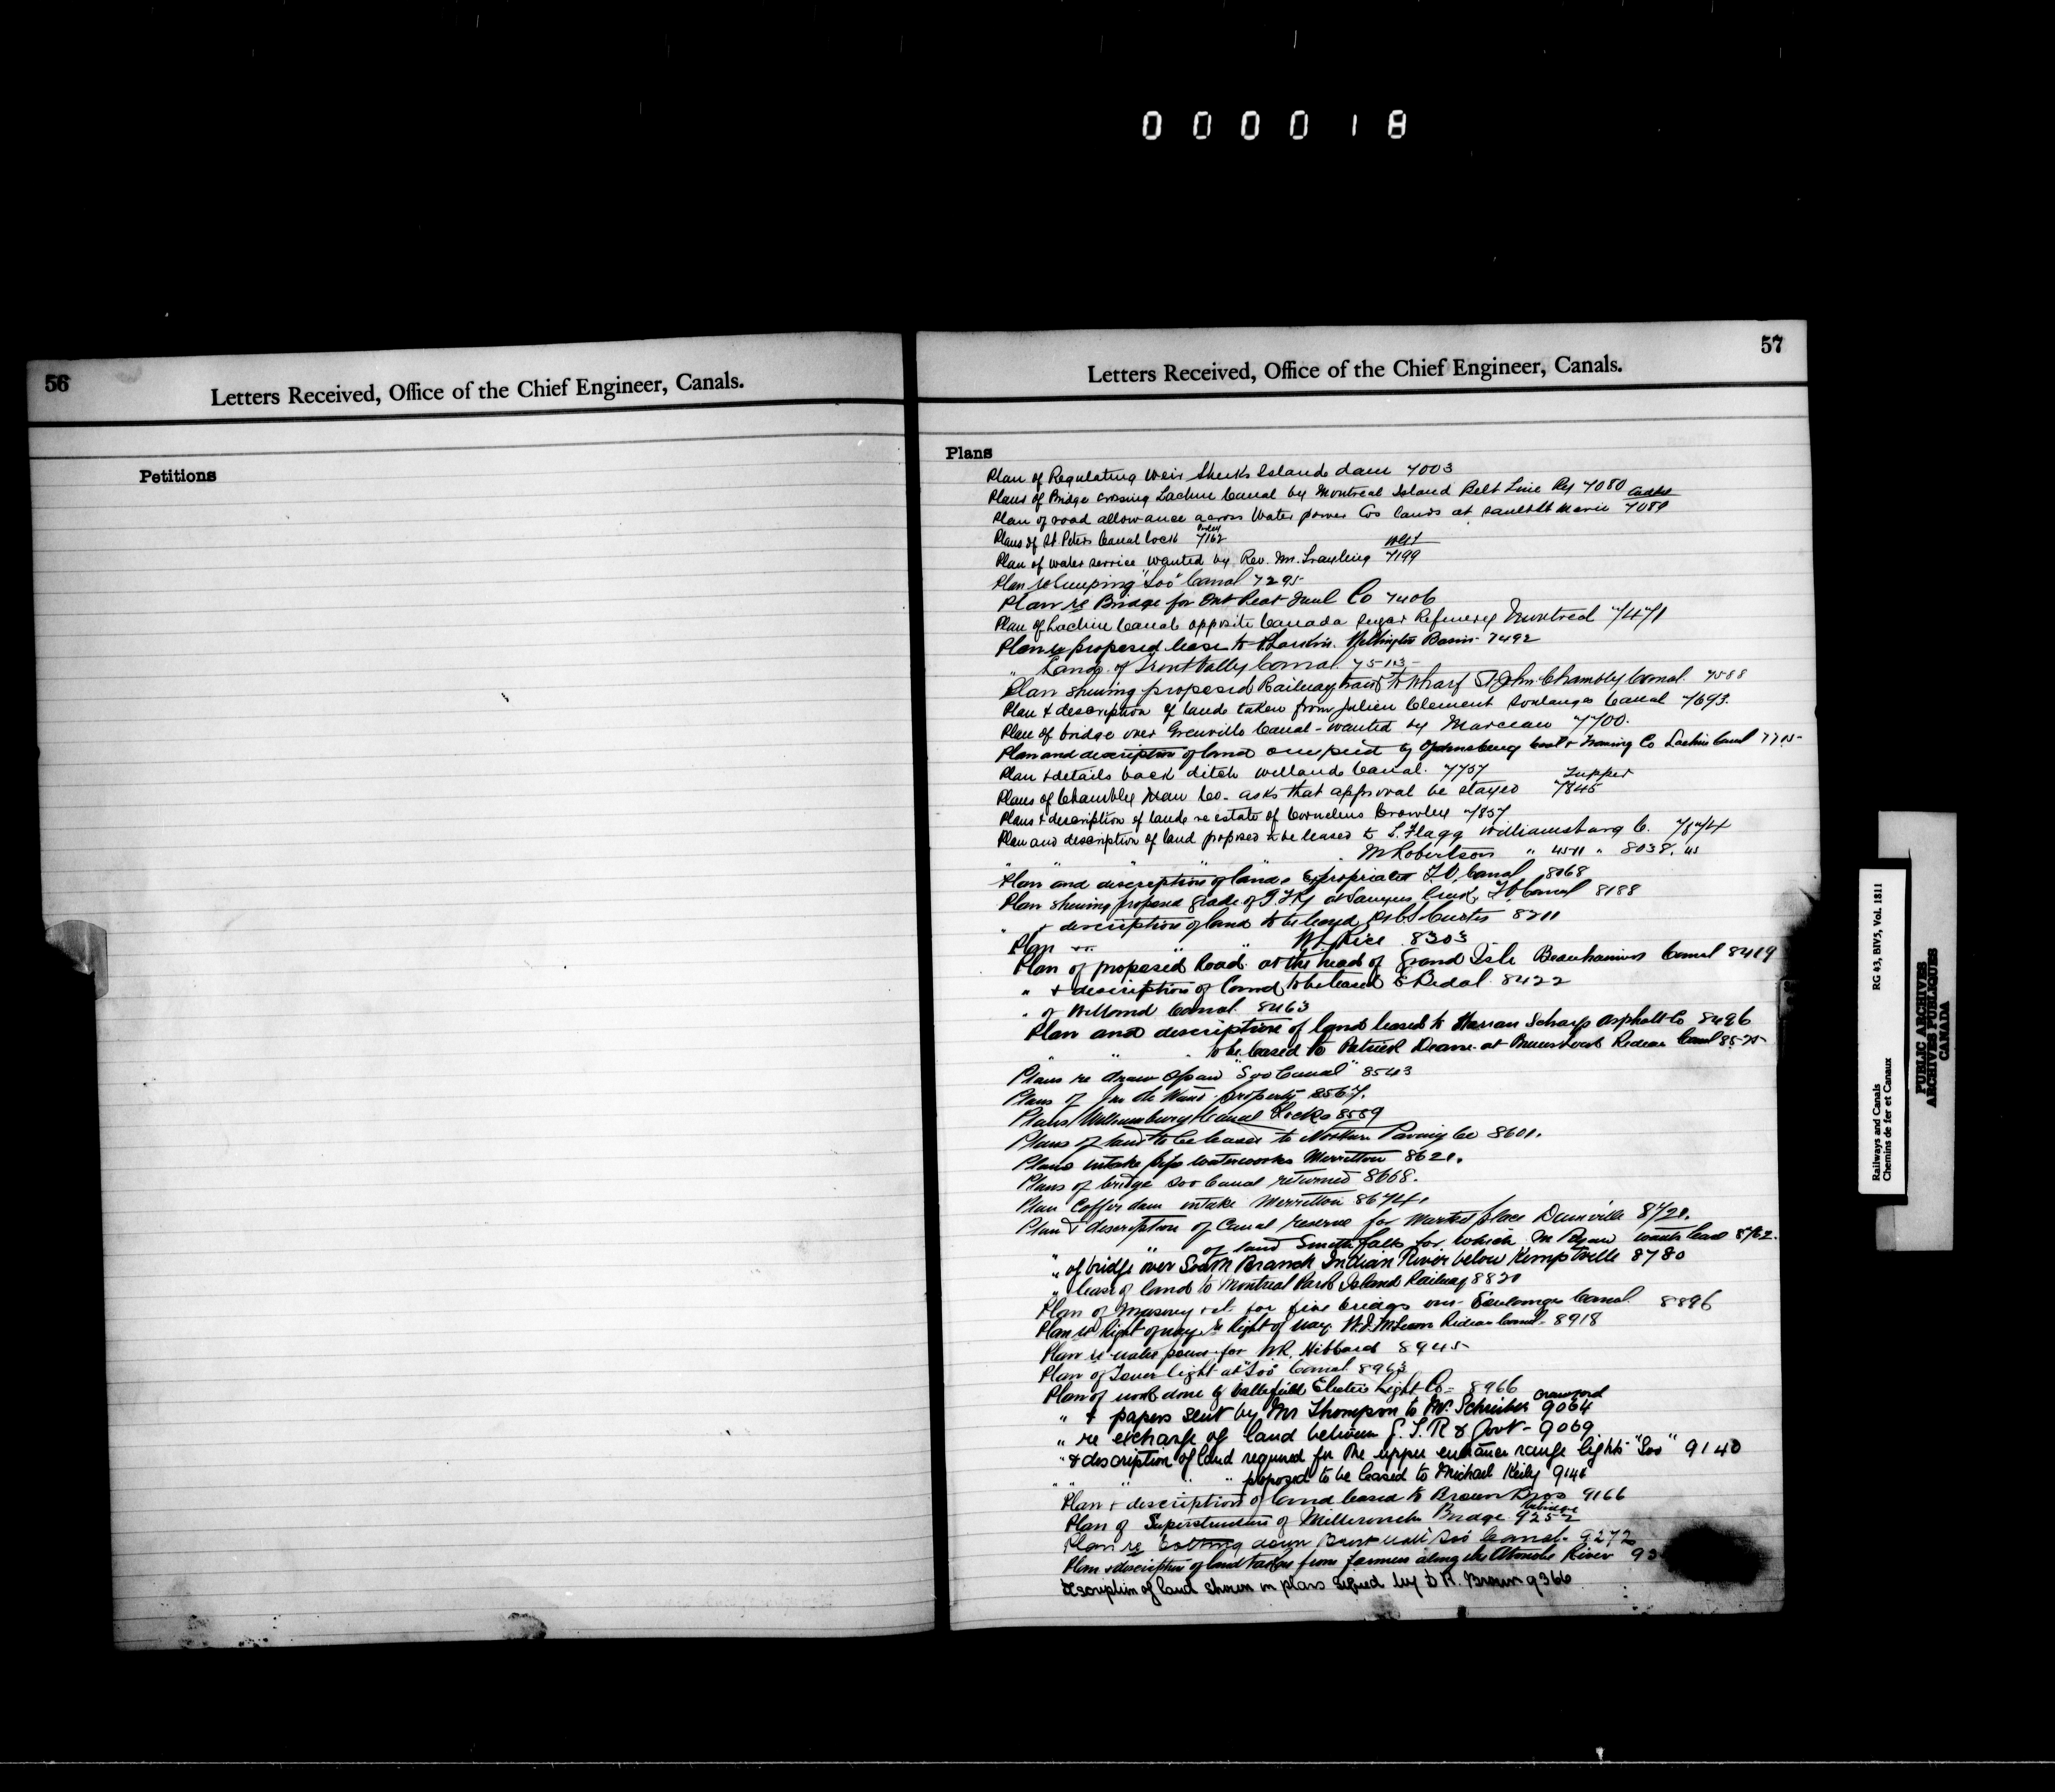 000018
56
Letters Received, Office of the Chief Engineer, Canals.
Petitions
57
Letters Received, Office of the Chief Engineer, Canals.
Plans
Plan of Regulating Weir Sheiks Islands dam 7003
Plans of Bridge crossing Lachine Canal by Montreal Island Belt Line Ry 7080
Plan of road allowance across Water power Cos lands at Sault St Marie 7089
Plans of St Peters Canal Lock 7162
Plan of water service wanted by Rev. Mr. 7199
Plan re "Soo" Canal 7295
Plan re Bridge for Ont Peat Fuel Co 7406
Plan of Lachine Canal opposite Canada Sugar Refinery Montreal 7471
Plan re proposed lease to Wellington Basin 7492
" Lands of Trent Valley Canal
Plan shewing proposed Railway track to Wharf St John Chambly Canal. 7588
Plan & description of lands taken from Julien Clement Soulanges Canal 7693.
Plan of bridge over Grenville Canal - wanted by Marceau 7700.
Plan and description of land occupied by Ogdensburg Coal & Towing Co Lachine Canal 7715
Plan & details back ditch Welland Canal. 7757
Plans of Chambly Man Co. asks that approval be stayed Tupper 7845
Plans & description of lands re estate of Cornelius Crowley 7857
Plan and description of land proposed to be leased to L. Flagg Williamsburg C. 7874
" " " " " M Robertson " " 8038.
Plan and description of lands Expropriated T.V. Canal 8068
Plan shewing proposed grade of G.T.Ry at Sawyers Creek, T.V. Canal 8188
" & description of land to be leased Curtis 8211
Plan " " " Rice 8303
Plan of proposed Road at the head of Grand Isle Beauharnois Canal 8419
" & description of land to be leased E Redal 8422
" of Welland Canal 8463
Plan and description of land leased to Warran Scharf Asphalt Co 8496
" " " to be leased to Patrick Deane at Rideau Canal 8525
Plans re draw span "Soo Canal" 8543
Plans of property 8567.
Plans Williamsburg Canal Locks 8589
Plans of land to be leased to Northern Paving Co 8601.
Plans intake pipe waterworks Merritton 8621.
Plans of bridge Soo Canal returned 8668.
Plan Coffer dam intake Merritton 8674.
Plan & description of Canal reserve for Market place Dunnville 8721.
" " of land Smiths falls for which M Ryan wants lease 8762.
" of bridge over South Branch Indian River below Kemptville 8780
" lease of land to Montreal Park Island Railway 8821
Plan of Masonry etc. for five bridges over Soulanges Canal. 8896
Plan re Right of way re Right of way W.J. McLean Rideau Canal - 8918
Plan re water power for W.R. Hibbard 8945
Plan of Tower light at "Soo" Canal. 8963
Plan of work done by Battlefield Electric Light Co - 8966
" & papers sent by Mr Thompson to Mr. Schreiber Crawford 9064
" re exchange of land between G.T.R & Govt - 9069
" & description of land required for the upper entrance range lights "Soo" 9140
" " " " proposed to be leased to Michael Keily 9148
Plan & description of land leased to Brown Bros 9166
Plan of Superstructure of Bridge. 9252
Plan re bolting down Soo Canal - 9272
Plan & description of land taken from farmers along the River 93
Description of land shown on plans signed by D R. Brown 9366
Railways and Canals
Chemins de fer et Canaux
RG 43, BIV5, Vol. 1811
PUBLIC ARCHIVES
ARCHIVES PUBLIQUES
CANADA